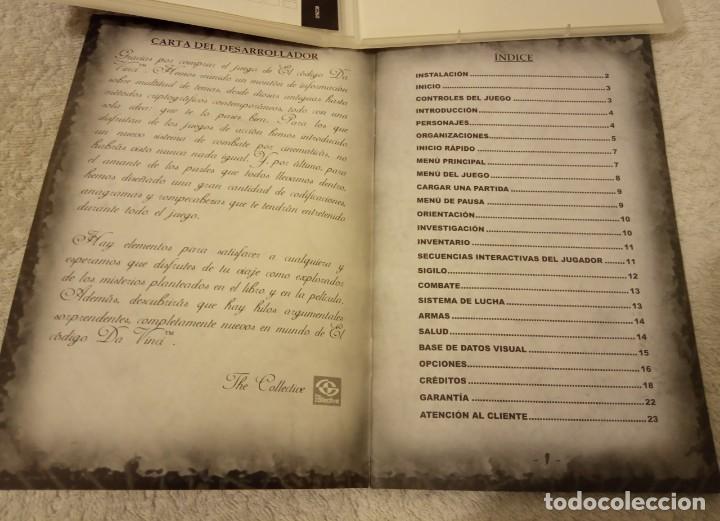 CARTA DEL DESARROLLADOR
Gracias por comprar el juego de El código Da
Vinci™. Hemos reunido un montón de información
sobre multitud de temas, desde diosas antiguas hasta
métodos criptográficos contemporáneos, todo con una
sola idea: que te lo pases bien. Para los que
disfrutan de los juegos de acción hemos introducido
un nuevo sistema de combate por cinemáticas, no
habrás visto nunca nada igual. Y, por último, para
el amante de los puzles que todos llevamos dentro,
hemos diseñado una gran cantidad de codificaciones,
anagramas y rompecabezas que te tendrán entretenido
durante todo el juego.
Hay elementos para satisfacer a cualquiera y
esperamos que disfrutes de tu viaje como explorador
de los misterios planteados en el libro y en la película.
Además, descubrirás que hay hilos argumentales
sorprendentes, completamente nuevos en mundo de El
código Da Vinci™.
The Collective
ÍNDICE
INSTALACIÓN 2
INICIO 3
CONTROLES DEL JUEGO 3
INTRODUCCIÓN 4
PERSONAJES 4
ORGANIZACIONES 5
INICIO RÁPIDO 7
MENÚ PRINCIPAL 7
MENÚ DEL JUEGO 8
CARGAR UNA PARTIDA 9
MENÚ DE PAUSA 9
ORIENTACIÓN 10
INVESTIGACIÓN 10
INVENTARIO 11
SECUENCIAS INTERACTIVAS DEL JUGADOR 11
SIGILO 12
COMBATE 13
SISTEMA DE LUCHA 13
ARMAS 14
SALUD 14
BASE DE DATOS VISUAL 15
OPCIONES 16
CRÉDITOS 18
GARANTÍA 22
ATENCIÓN AL CLIENTE 23
- 1 -
todocoleccion